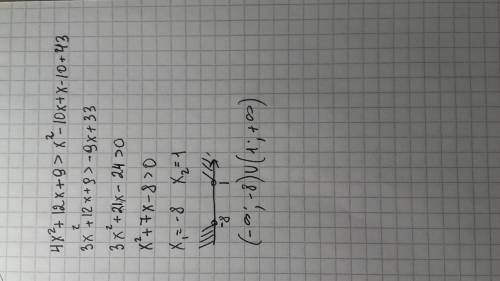 4x²+12x+9>x²-10x+x-10+43
3x²+12x+9>-9x+33
3x²+21x-24>0
x²+7x-8>0
x₁=-8 x₂=1
-8 1
(-∞;-8)∪(1;+∞)